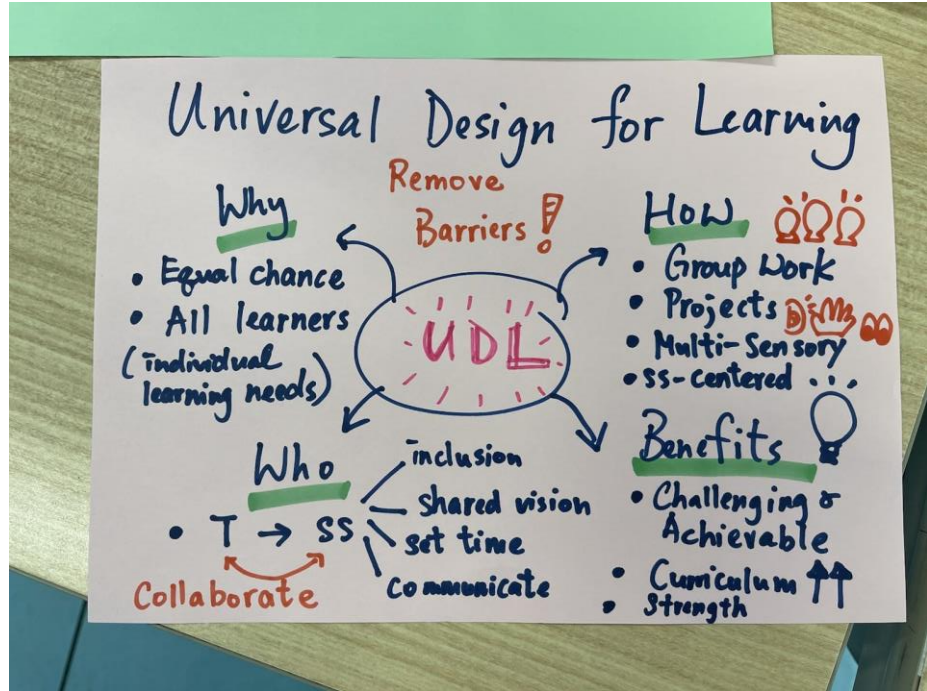 Universal Design for Learning
Remove
Barriers!
Why
• Equal chance
• All learners
(individual
learning needs)
UDL
How
• Group Work
• Projects
• Multi-Sensory
• ss-centered
Who
• T → SS
inclusion
shared vision
set time
communicate
Collaborate
Benefits
• Challenging &
Achievable
• Curriculum ↑↑
• Strength